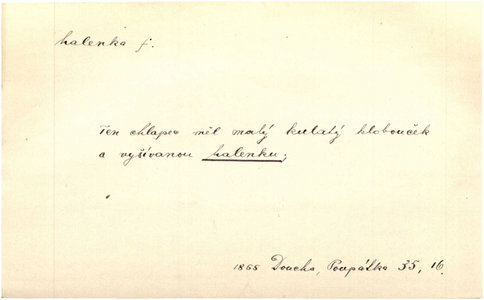 halenka f.
Ten chlapec měl malý kulatý klobouček
a vyšívanou halenku;
1855 Doucha, Poupátka 35, 16.